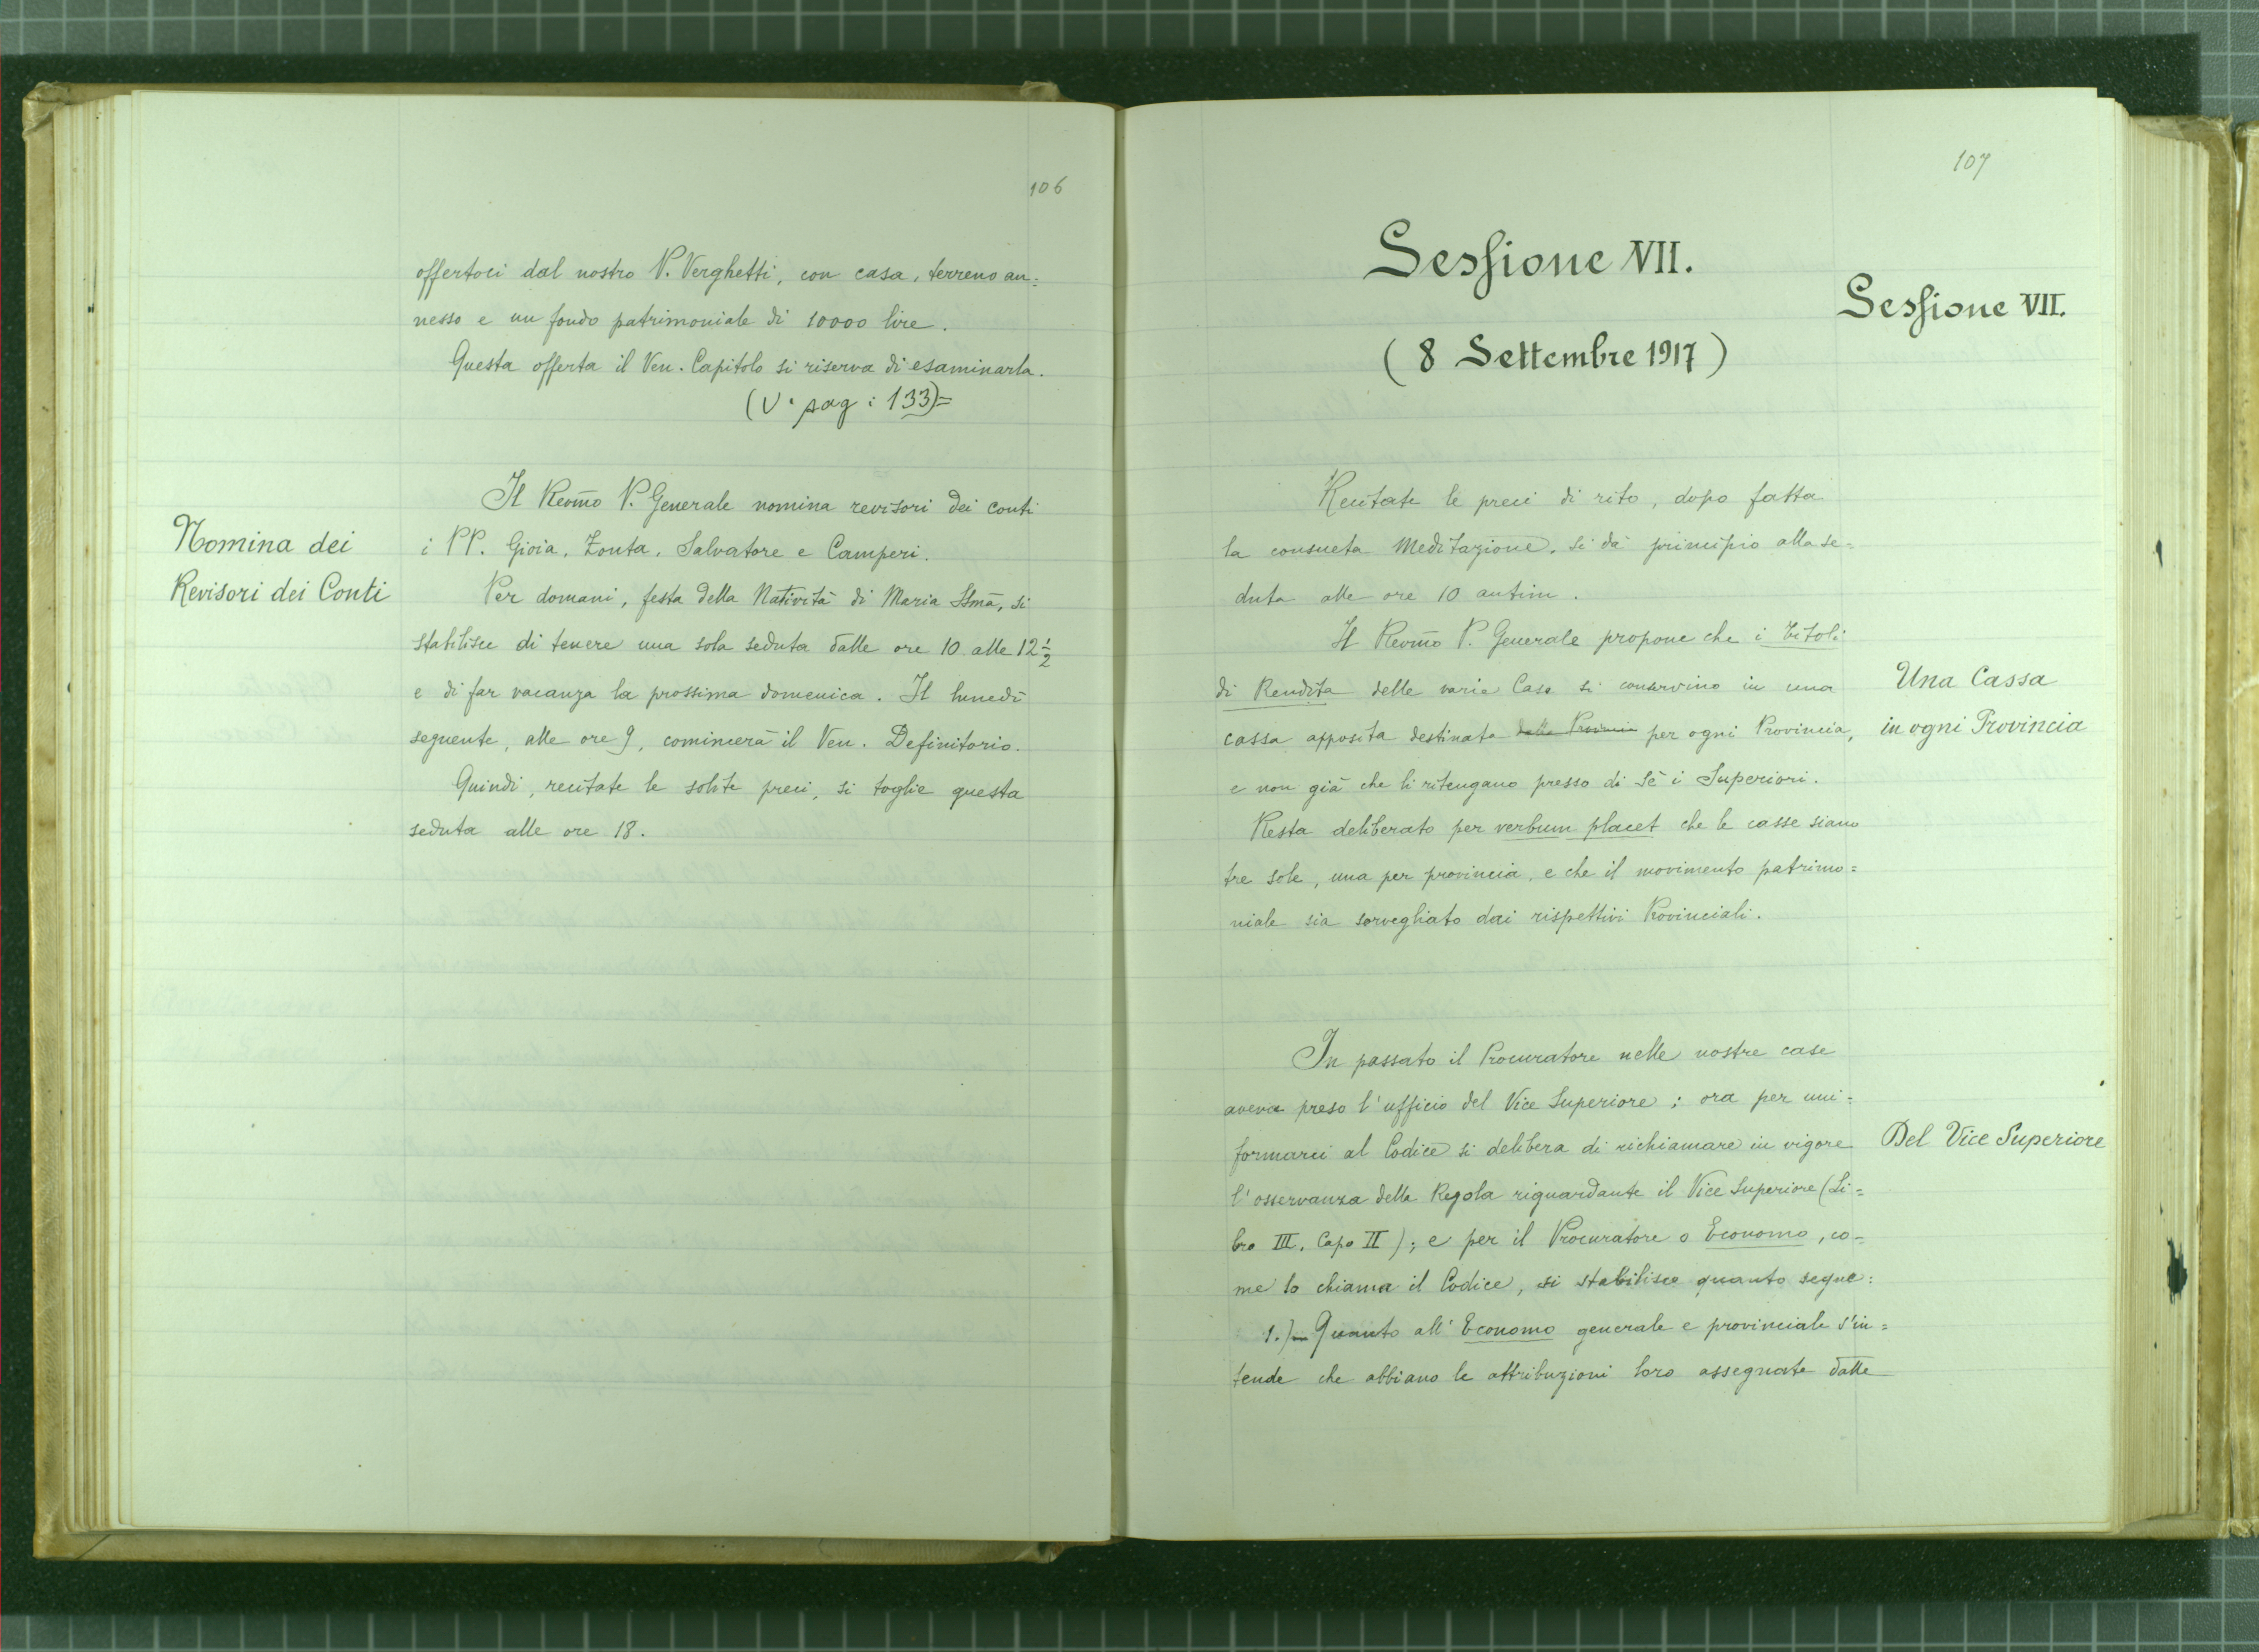 106
offertoci dal nostro P. Verghetti, con casa, terreno an=
nesso e un fondo patrimoniale di 10000 lire.
Questa offerta il Ven. Capitolo si riserva di esaminarla.
(V. pag: 133)=
Il Revm̄o P. Generale nomina revisori dei conti
Nomina dei
Revisori dei Conti
i PP. Gioia, Zonta, Salvatore e Camperi.
Per domani, festa della Natività di Maria SSmā, si
stabilisce di tenere una sola seduta dalle ore 10 alle 12 1/2
e di far vacanza la prossima domenica. Il lunedì
seguente, alle ore 9, comincerà il Ven. Definitorio.
Quindi, recitate le solite preci, si toglie questa
seduta alle ore 18.
107
Sessione VII.
Sessione VII.
(8 Settembre 1917)
Recitate le preci di rito, dopo fatta
la consueta Meditazione, si dà principio alla se=
duta alle ore 10 antim.
Il Revm̄o P. Generale propone che i titoli
di Rendita delle varie Case si conservino in una
Una Cassa
in ogni Provincia
cassa apposita destinata dalla Provincia per ogni Provincia,
e non già che li ritengano presso di sè i Superiori.
Resta deliberato per verbum placet che le casse siano
tre sole, una per provincia, e che il movimento patrimo=
niale sia sorvegliato dai rispettivi Provinciali.
In passato il Procuratore nelle nostre case
aveva preso l'ufficio del Vice Superiore; ora per uni=
formarci al Codice si delibera di richiamare in vigore
Del Vice Superiore
l'osservanza della Regola riguardante il Vice Superiore (Li=
bro III, Capo II); e per il Procuratore o Economo, co=
me lo chiama il Codice, si stabilisce quanto segue:
1.)- Quanto all'Economo generale e provinciale s'in=
tende che abbiano le attribuzioni loro assegnate dalle